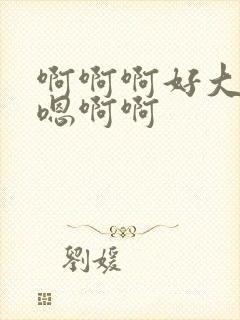 啊啊啊好大
嗯啊啊
劉媛